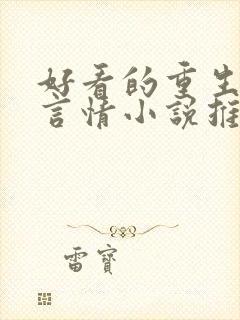 好看的重生
言情小說推
雷寶